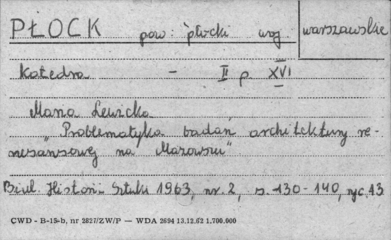 PŁOCK pow: płocki woj. warszawskie
Katedra - II p. XVI
Maria Lewicka
"Problematyka badań architektury re-
nesansowej na Mazowszu"
Biul. Historii Sztuki 1963, nr. 2, s. 130-140, ryc. 13
CWD - B-15-b, nr 2827/ZW/P — WDA 2694 13.12.62 1.700.000